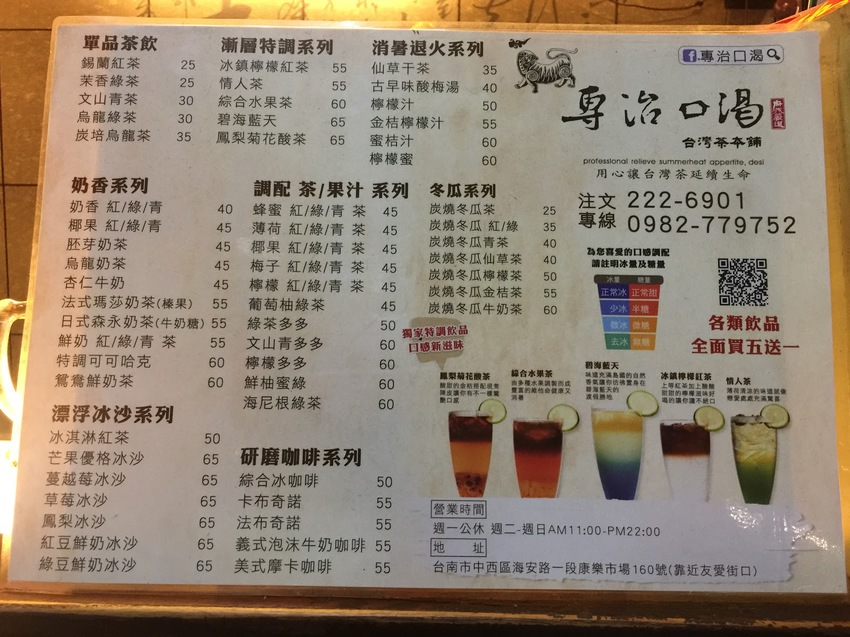 單品茶飲
錫蘭紅茶 25
茉香綠茶 25
文山青茶 30
烏龍綠茶 30
炭培烏龍茶 35
漸層特調系列
冰鎮檸檬紅茶 55
情人茶 55
綜合水果茶 60
碧海藍天 65
鳳梨菊花酸茶 65
消暑退火系列
仙草干茶 35
古早味酸梅湯 40
檸檬汁 50
金桔檸檬汁 55
蜜桔汁 60
檸檬蜜 60
f 專治口渴
專治口渴
台灣茶夲舖
professional relieve summerheat appertite, desi
用心讓台灣茶延續生命
注文專線
222-6901
0982-779752
奶香系列
奶香 紅/綠/青 40
椰果 紅/綠/青 45
胚芽奶茶 45
烏龍奶茶 45
杏仁牛奶 45
法式瑪莎奶茶(榛果) 55
日式森永奶茶(牛奶糖) 55
鮮奶 紅/綠/青 茶 55
特調可可哈克 60
鴛鴦鮮奶茶 60
調配 茶/果汁 系列
蜂蜜 紅/綠/青 茶 45
薄荷 紅/綠/青 茶 45
椰果 紅/綠/青 茶 45
梅子 紅/綠/青 茶 45
檸檬 紅/綠/青 茶 45
葡萄柚綠茶 50
綠茶多多 50
文山青多多 60
檸檬多多 60
鮮柚蜜綠 60
海尼根綠茶 60
冬瓜系列
炭燒冬瓜茶 25
炭燒冬瓜 紅/綠 35
炭燒冬瓜青茶 40
炭燒冬瓜仙草茶 40
炭燒冬瓜檸檬茶 50
炭燒冬瓜金桔茶 55
炭燒冬瓜牛奶茶 60
為您喜愛的口感調配
請註明冰量及糖量
冰量 糖量
正常冰 正常甜
少冰 半糖
微冰 微糖
去冰 無糖
各類飲品
全面買五送一
獨家特調飲品
口感新滋味
鳳梨菊花酸茶
綜合水果茶
由多種水果調製而成
豐富的維他命健康又
消暑
碧海藍天
味道充滿島國的自然
香氣讓你彷彿置身在
碧海藍天的
渡假勝地
冰鎮檸檬紅茶
上等紅茶加上酸酸
甜甜的檸檬滋味好
喝的讓你不絕口
情人茶
薄荷清涼的味道就像
戀愛處處充滿驚喜
漂浮冰沙系列
冰淇淋紅茶 50
芒果優格冰沙 65
蔓越莓冰沙 65
草莓冰沙 65
鳳梨冰沙 65
紅豆鮮奶冰沙 65
綠豆鮮奶冰沙 65
研磨咖啡系列
綜合冰咖啡 50
卡布奇諾 55
法布奇諾 55
義式泡沫牛奶咖啡 55
美式摩卡咖啡 55
營業時間
週一公休 週二-週日AM11:00-PM22:00
地 址
台南市中西區海安路一段康樂市場160號(靠近友愛街口)